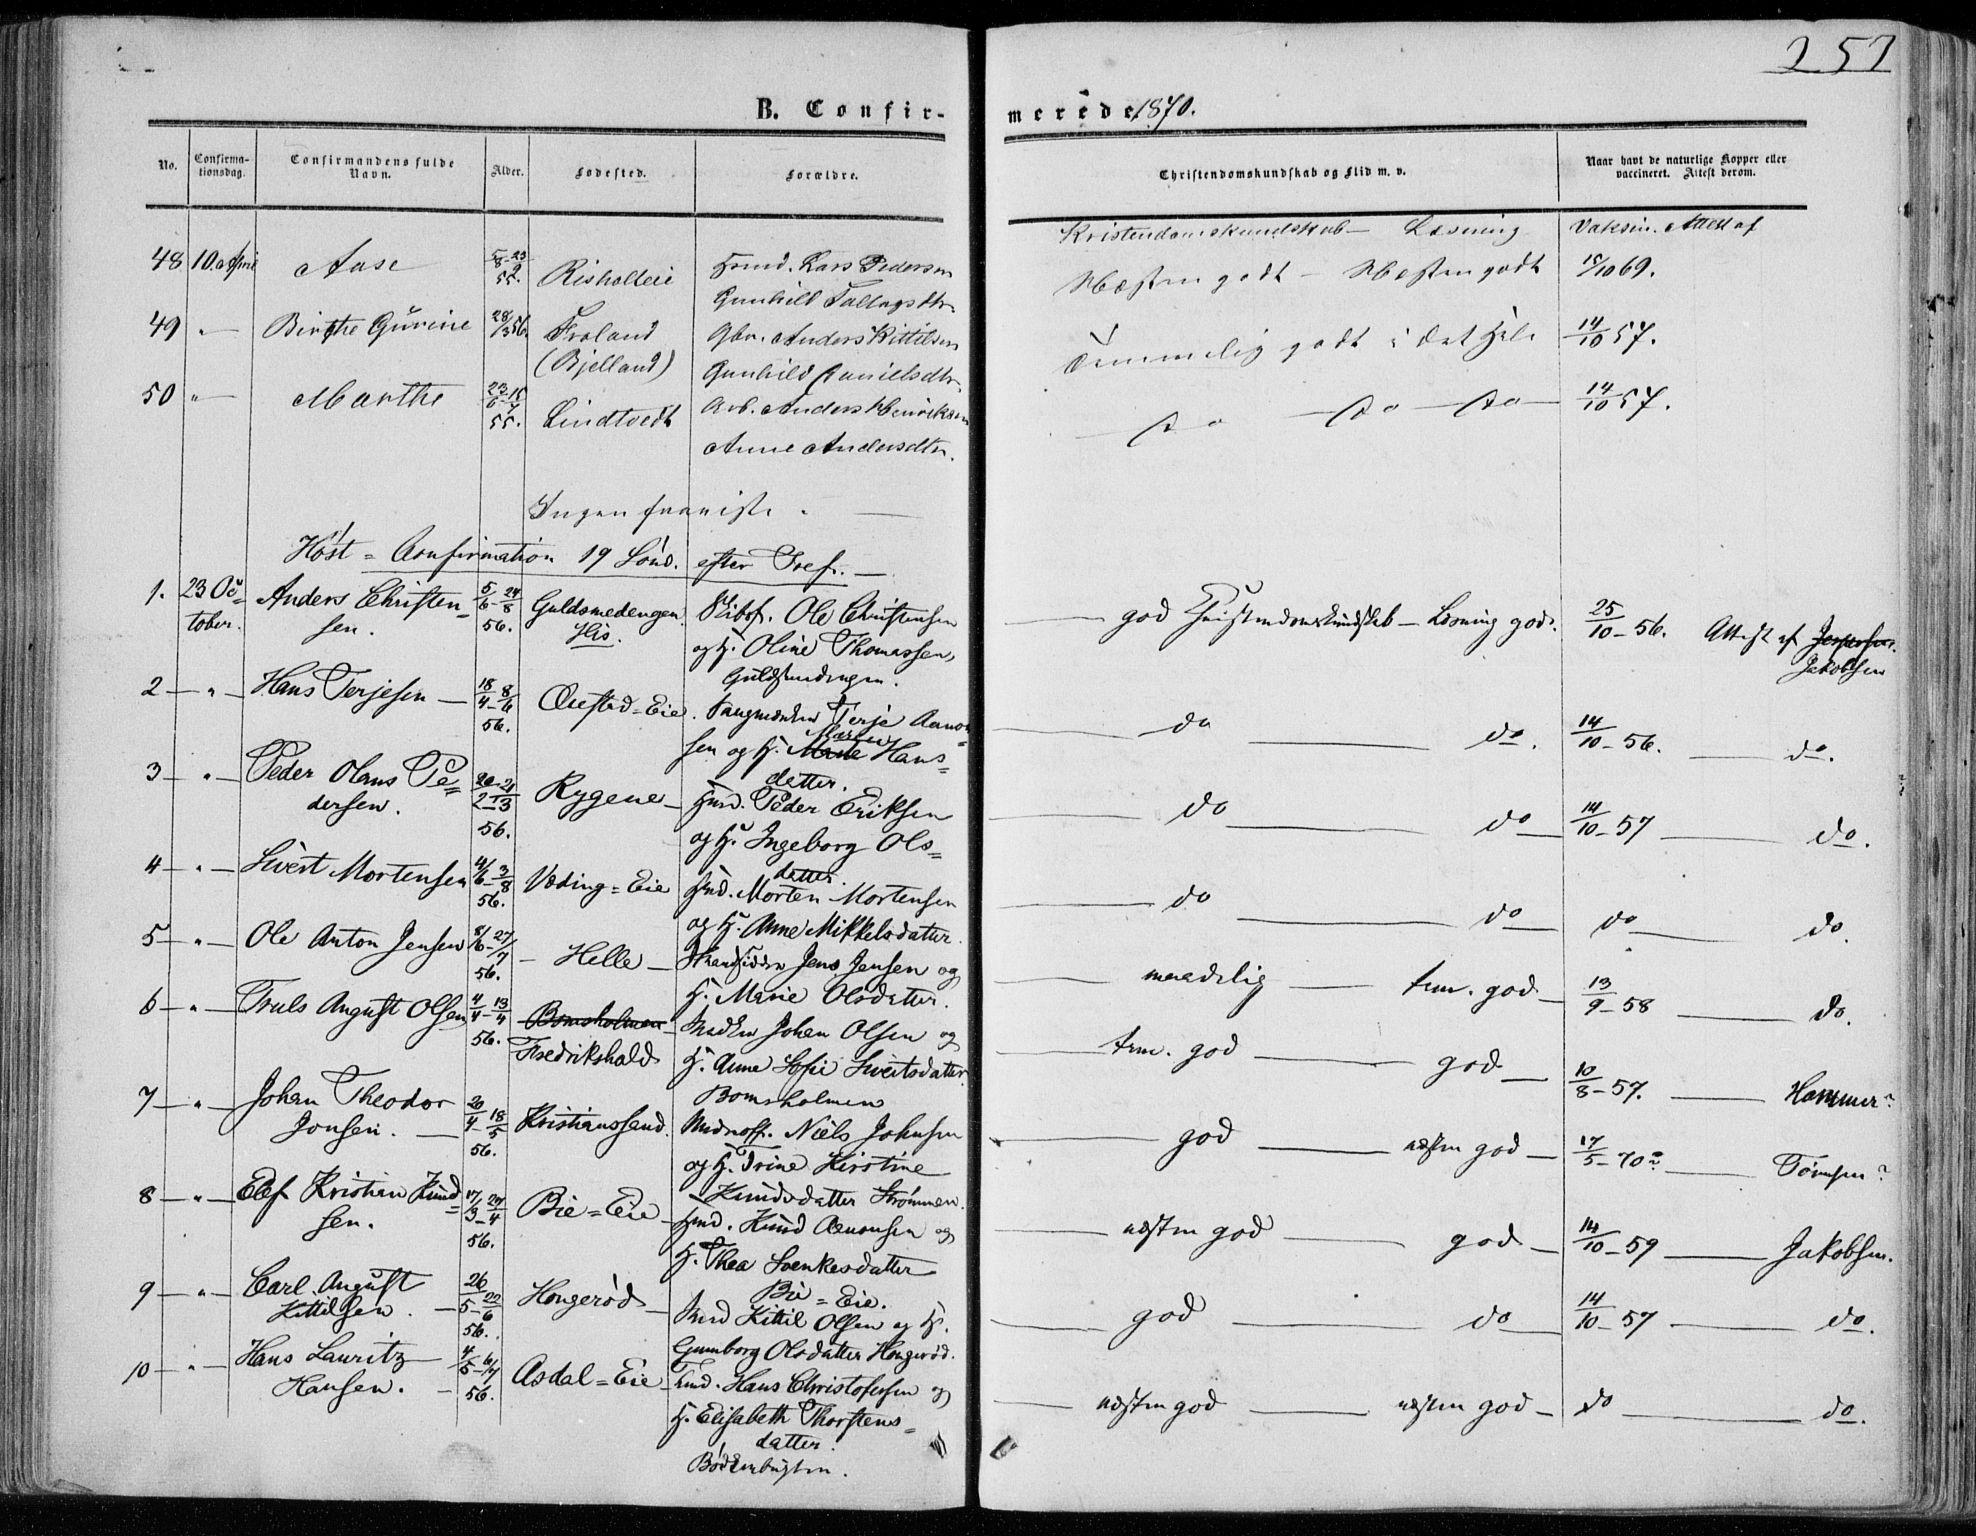 257
B. Confir-
merede 1870.
No.
Confirma-
tionsdag.
Confirmandens fulde
Navn.
Alder.
Fødested.
Forældre.
Christendomskundskab og Flid m. v.
Naar havt de naturlige Kopper eller
vaccineret. Attest derom.
Kristendomskundskab — Læsning
Vaksin. Attest af
48 10. April Aase 5/8-23/2 55. Risholleie Hmd. Lars Pedersen
Gunhild Tallagsdtr.
Næsten godt — Næsten godt 15/10 69.
49 " — Birthe Gurine 28/3 56. Froland Gbr. Anders Kittilsen
(Bjelland) Gunhild Danielsdtr.
Temmelig godt i det Hele 14/10 57.
50 " — Marthe 23/6-15/7 55. Lindtvedt Arb. Anders Henriksen
Anne Andersdtr.
— do — do — do — 14/10 57.
Ingen fraviste. —
Høst = Confirmation 19 Sönd. efter Tref. —
1. 23 Oc= Anders Christen= 5/6-24/8 Guldsmedengen Ole Christensen
tober. sen. 56. His. og H. Oline Thomassen,
Guldsmedengen.
— god Christendomskundskab — Læsning god. 25/10-56. Attest af Jespersen.
Jakobsen
2 — " — Hans Terjesen — 18/4-8/6 Øiestad=Eie. Terje Aanon=
56. sen og H. Marie Maren Hans=
datter.
do — do. 14/10-56. — do.
3 — " — Peder Olaus Pe= 20/2-21/3 Rygene — Hmd. Peder Eriksen
dersen. 56. og H. Ingeborg Ols=
datter.
— do — do — 14/10-57 — do.
4 — " — Sivert Mortensen 4/6-3/8 Væding=Eie Hmd. Morten Mortensen
56. og H. Anne Mikkelsdatter.
— do — do do — do.
5 — " — Ole Anton Jensen 8/6-27/7 — Helle — Strandsidder Jens Jensen og
56. H. Marie Olsdatter.
— maadelig — tem. god — 13/9-58 — do.
6 — " — Truls August Olsen 4/4-13/4 Bomsholmen Johan Olsen og
56. Fredrikshald H. Anne Sofie Sivertsdatter
Bomsholmen
— tem. god — god — 10/8-57. — Hammer?
7 — " — Johan Theodor 20/4-18/5 Kristianssand. Niels Johnsen
Jonsen. — 56. og H. Trine Kirstine
Knudsdatter Strømmen.
— god — næsten god — 17/5-70? — Tönnsen?
8 — " — Elef Kristian Knud= 17/3-24/4 Bie=Eie — Hmd. Knud Aanonsen og
sen. 56. H. Thea Svenkesdatter
Bie=Eie.
— næsten god — god — 14/10-59 — Jakobsen.
9 — " — Carl August 26/5-22/6 Hongerød — Hmd Kittil Olsen og H.
Kittilsen. — 56. Gunborg Olsdatter Hongerød.
— god — do — 14/10-57 — do.
10 — " — Hans Lauritz 4/5-6/7 Asdal=Eie — Hmd. Hans Christofersen og
Hansen. — 56. H. Elisabeth Thorstens=
datter.
Bødkerbugten.
— næsten god — næsten god — do — do.